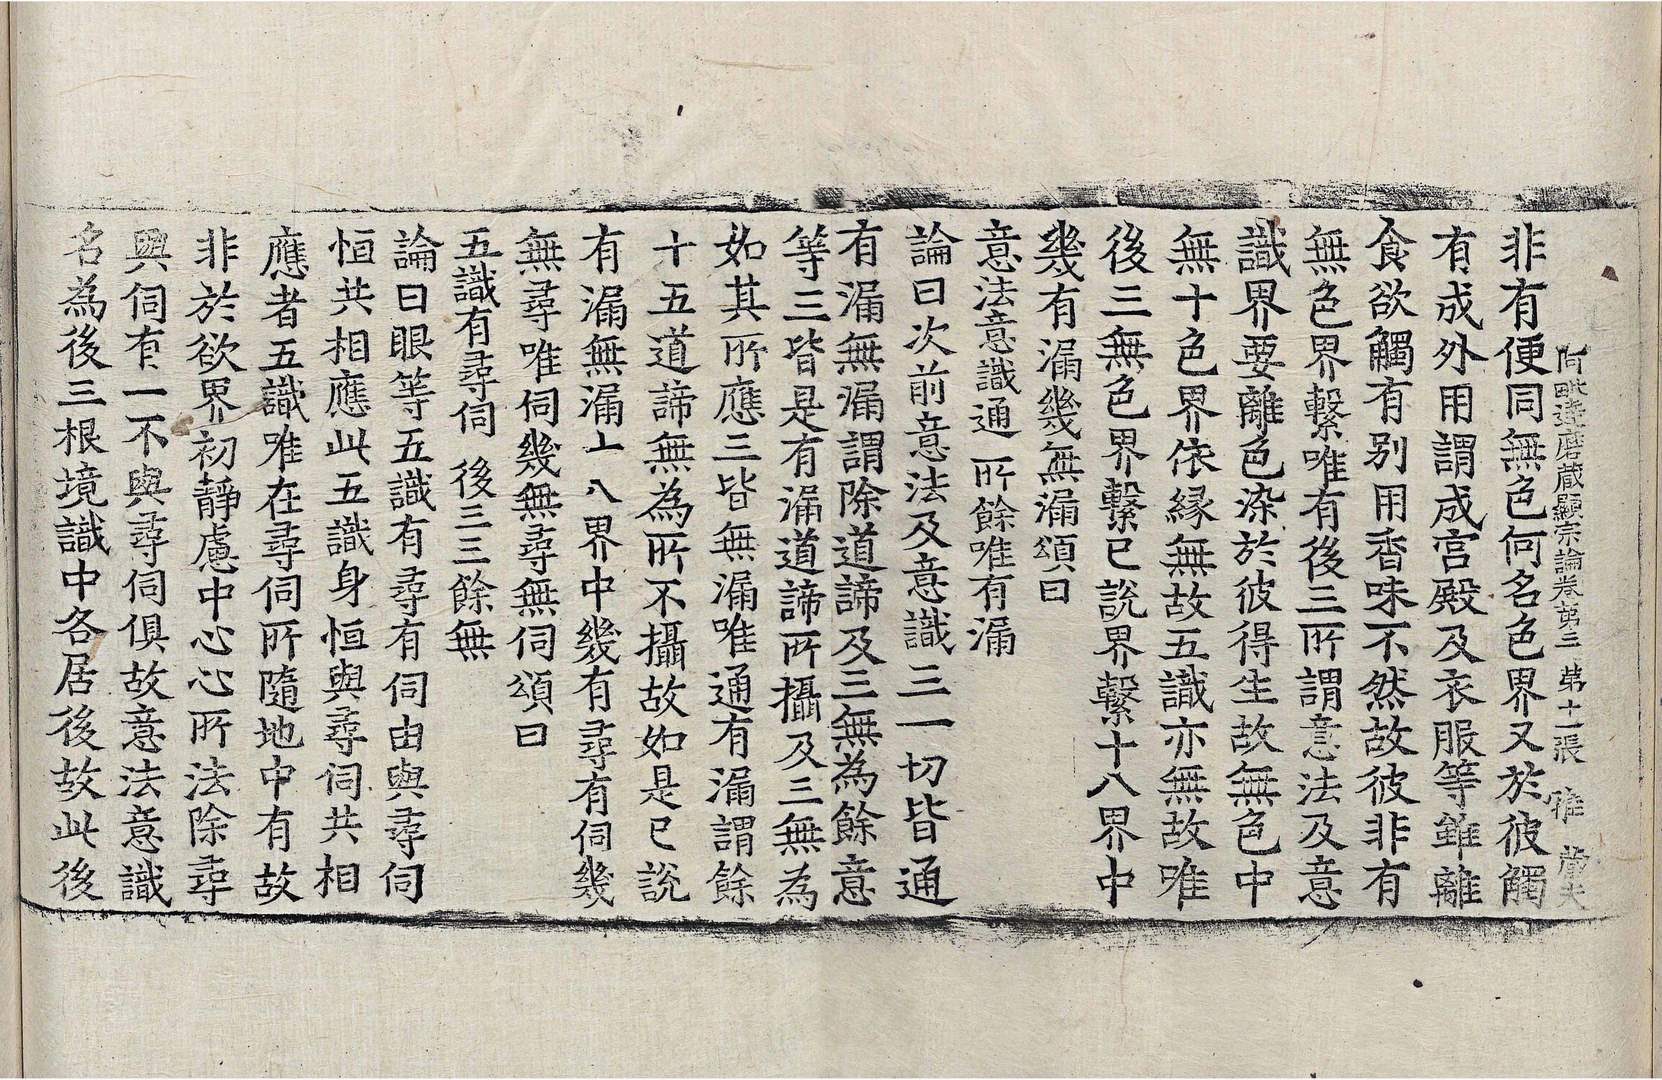 阿毗達磨藏顯宗論卷第三 第十一張 雅
非有便同無色何名色界又於彼觸
有成外用謂成宮殿及衣服等雖離
食欲觸有別用香味不然故彼非有
無色界繫唯有後三所謂意法及意
識界要離色染於彼得生故無色中
無十色界依緣無故五識亦無故唯
後三無色界繫已說界繫十八界中
幾有漏幾無漏頌曰
意法意識通 所餘唯有漏
論曰次前意法及意識三一切皆通
有漏無漏謂除道諦及三無為餘意
等三皆是有漏道諦所攝及三無為
如其所應三皆無漏唯通有漏謂餘
十五道諦無為所不攝故如是已說
有漏無漏十八界中幾有尋有伺幾
無尋唯伺幾無尋無伺頌曰
五識有尋伺 後三三餘無
論曰眼等五識有尋有伺由與尋伺
恒共相應此五識身恒與尋伺共相
應者五識唯在尋伺所隨地中有故
非於欲界初靜慮中心心所法除尋
與伺有一不與尋伺俱故意法意識
名為後三根境識中各居後故此後